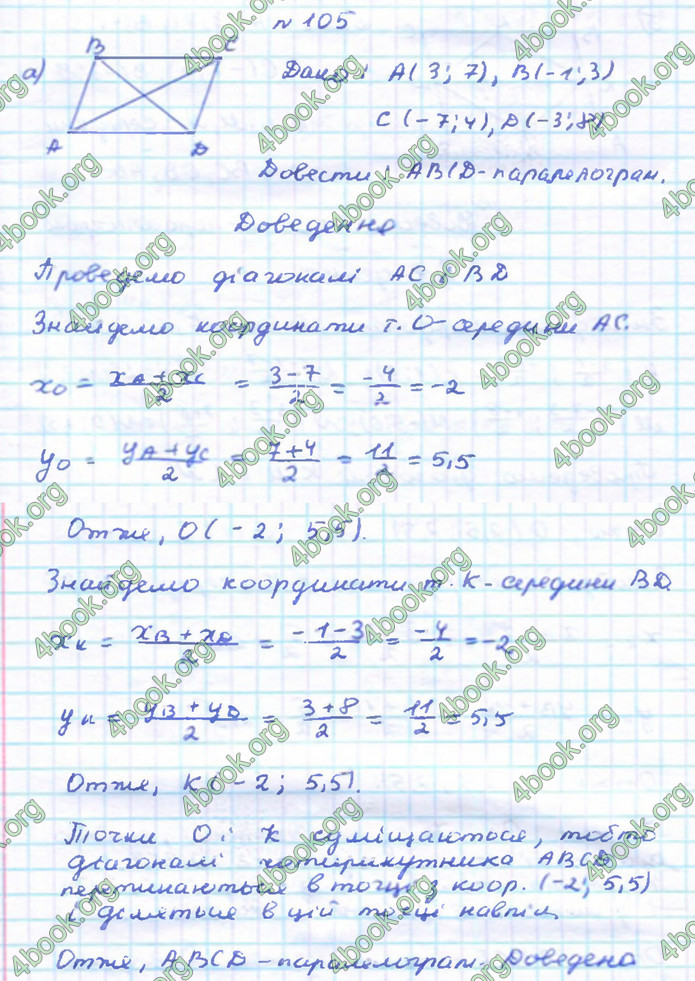 № 105
а) B C
A D
Дано: A(3; 7), B(-1; 3)
C(-7; 4), D(-3; 8)
Довести: ABCD - паралелограм.
Доведення
Проведемо діагоналі AC і BD
Знайдемо координати т. O - середини AC.
x₀ = (xA + xC)/2 = (3-7)/2 = -4/2 = -2
y₀ = (yA + yC)/2 = (7+4)/2 = 11/2 = 5,5
Отже, O(-2; 5,5).
Знайдемо координати т. K - середини BD.
xK = (xB + xD)/2 = (-1-3)/2 = -4/2 = -2
yK = (yB + yD)/2 = (3+8)/2 = 11/2 = 5,5
Отже, K(-2; 5,5).
Точки O і K суміщаються, тобто
діагоналі чотирикутника ABCD
перетинаються в точці з коор. (-2; 5,5)
і діляться в цій точці навпіл.
Отже, ABCD - паралелограм. Доведено
4book.org